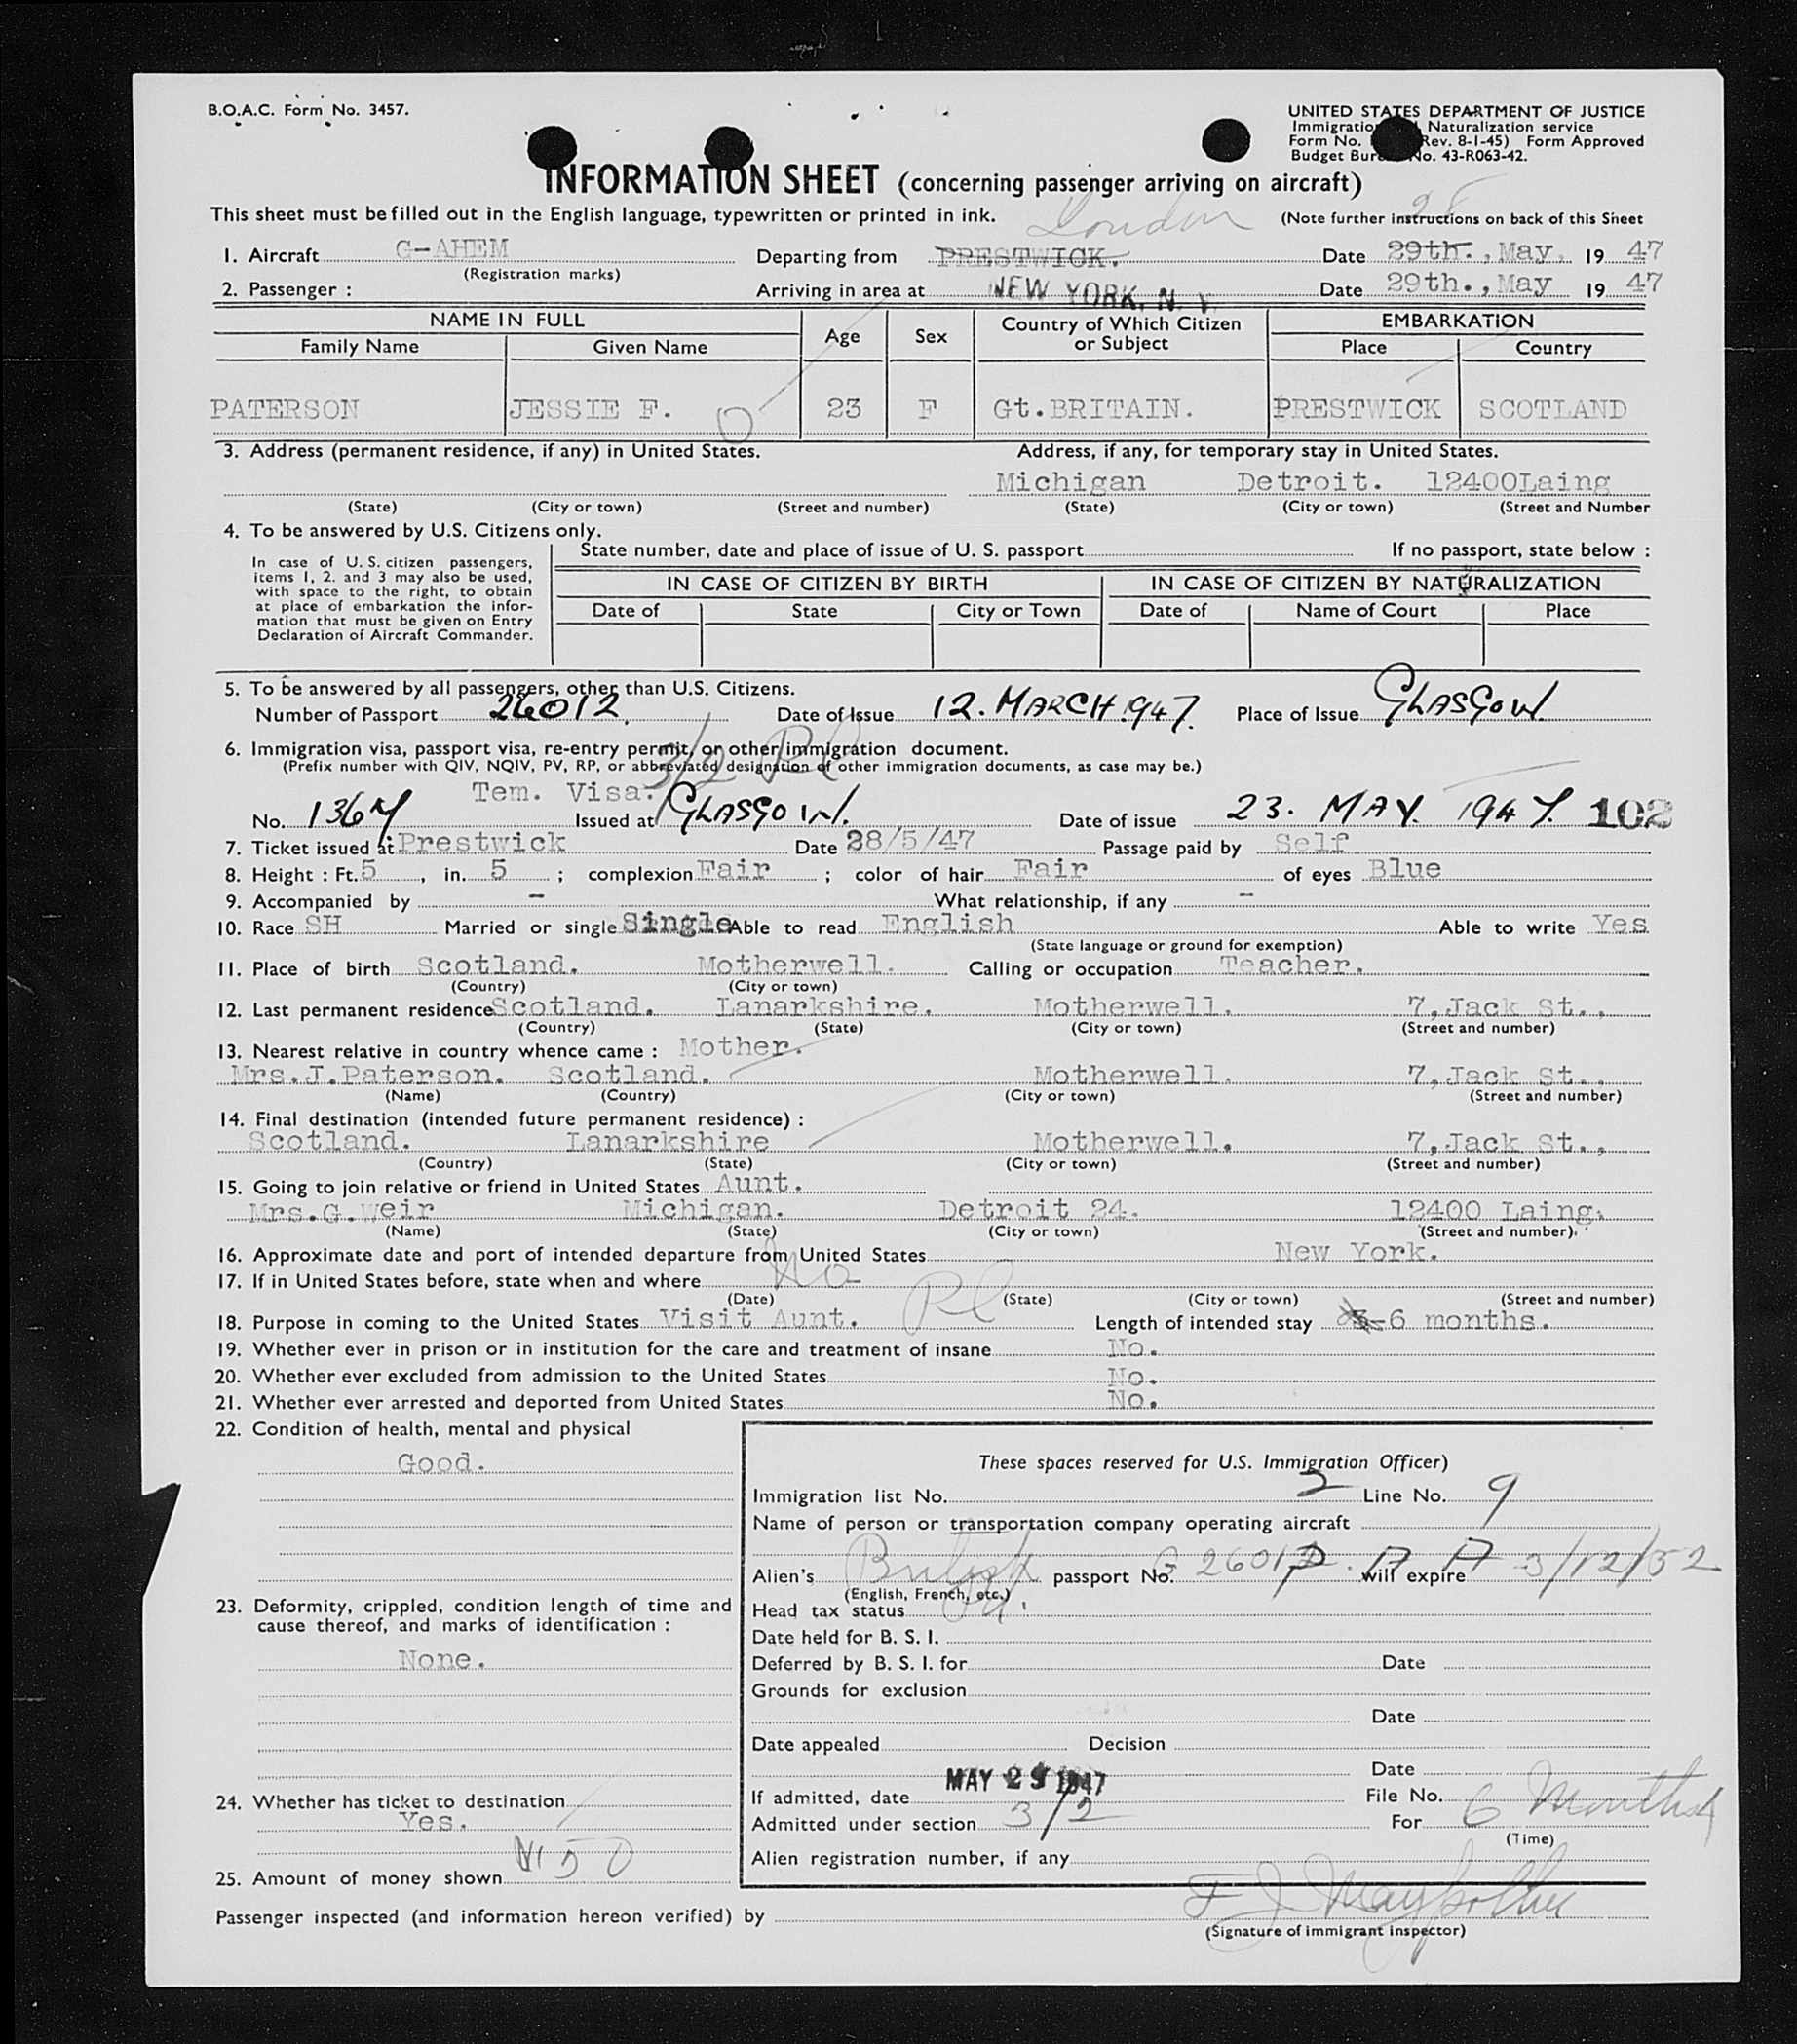 B.O.A.C. Form No. 3457.
UNITED STATES DEPARTMENT OF JUSTICE
Immigration Naturalization service
Form No. Rev. 8-1-45) Form Approved
Budget No. 43-R063-42.
INFORMATION SHEET (concerning passenger arriving on aircraft)
This sheet must be filled out in the English language, typewritten or printed in ink. London (Note further instructions on back of this Sheet
1. Aircraft G-AHEM Departing from PRESTWICK. Date 29th., May, 19 47
(Registration marks)
2. Passenger : Arriving in area at NEW YORK, N. Y Date 29th., May 19 47
NAME IN FULL Age Sex Country of Which Citizen or Subject EMBARKATION
Family Name Given Name Place Country
PATERSON JESSIE F. 23 F Gt.BRITAIN. PRESTWICK SCOTLAND
3. Address (permanent residence, if any) in United States. Address, if any, for temporary stay in United States.
Michigan Detroit. 12400Laing
(State) (City or town) (Street and number) (State) (City or town) (Street and Number
4. To be answered by U.S. Citizens only.
State number, date and place of issue of U. S. passport If no passport, state below :
In case of U. S. citizen passengers,
items 1, 2. and 3 may also be used,
with space to the right, to obtain
at place of embarkation the infor-
mation that must be given on Entry
Declaration of Aircraft Commander.
IN CASE OF CITIZEN BY BIRTH IN CASE OF CITIZEN BY NATURALIZATION
Date of State City or Town Date of Name of Court Place
5. To be answered by all passengers, other than U.S. Citizens.
Number of Passport 26012. Date of Issue 12. MARCH. 1947. Place of Issue GLASGOW.
6. Immigration visa, passport visa, re-entry permit, or other immigration document.
(Prefix number with QIV, NQIV, PV, RP, or abbreviated designation of other immigration documents, as case may be.)
3/2
Tem. Visa.
No. Issued at GLASGOW. Date of issue 23. MAY. 1947. 102
7. Ticket issued at Prestwick Date 28/5/47 Passage paid by Self
8. Height : Ft. 5 , in. 5 ; complexion Fair ; color of hair Fair of eyes Blue
9. Accompanied by - What relationship, if any -
10. Race SH Married or single Single Able to read English Able to write Yes
(State language or ground for exemption)
11. Place of birth Scotland. Motherwell. Calling or occupation Teacher.
(Country) (City or town)
12. Last permanent residence Scotland. Lanarkshire. Motherwell. 7,Jack St.,
(Country) (State) (City or town) (Street and number)
13. Nearest relative in country whence came : Mother.
Mrs.J.Paterson. Scotland. Motherwell. 7,Jack St.,
(Name) (Country) (City or town) (Street and number)
14. Final destination (intended future permanent residence) :
Scotland. Lanarkshire Motherwell. 7,Jack St.,
(Country) (State) (City or town) (Street and number)
15. Going to join relative or friend in United States Aunt.
Mrs.G.Weir Michigan. Detroit 24. 12400 Laing.
(Name) (State) (City or town) (Street and number).
16. Approximate date and port of intended departure from United States New York.
17. If in United States before, state when and where No
(Date) (State) (City or town) (Street and number)
18. Purpose in coming to the United States Visit Aunt. Length of intended stay 6 months.
19. Whether ever in prison or in institution for the care and treatment of insane No.
20. Whether ever excluded from admission to the United States No.
21. Whether ever arrested and deported from United States No.
22. Condition of health, mental and physical
Good.
23. Deformity, crippled, condition length of time and
cause thereof, and marks of identification :
None.
24. Whether has ticket to destination
Yes.
25. Amount of money shown 50
These spaces reserved for U.S. Immigration Officer)
Immigration list No. 2 Line No. 9
Name of person or transportation company operating aircraft
Alien's British passport No. 26012 will expire 3/12/52
(English, French, etc.)
Head tax status
Date held for B. S. I.
Deferred by B. S. I. for Date
Grounds for exclusion
Date
Date appealed Decision
Date
If admitted, date MAY 29 1947 File No.
Admitted under section 3/2 For 6 Months
(Time)
Alien registration number, if any
Passenger inspected (and information hereon verified) by
(Signature of immigrant inspector)